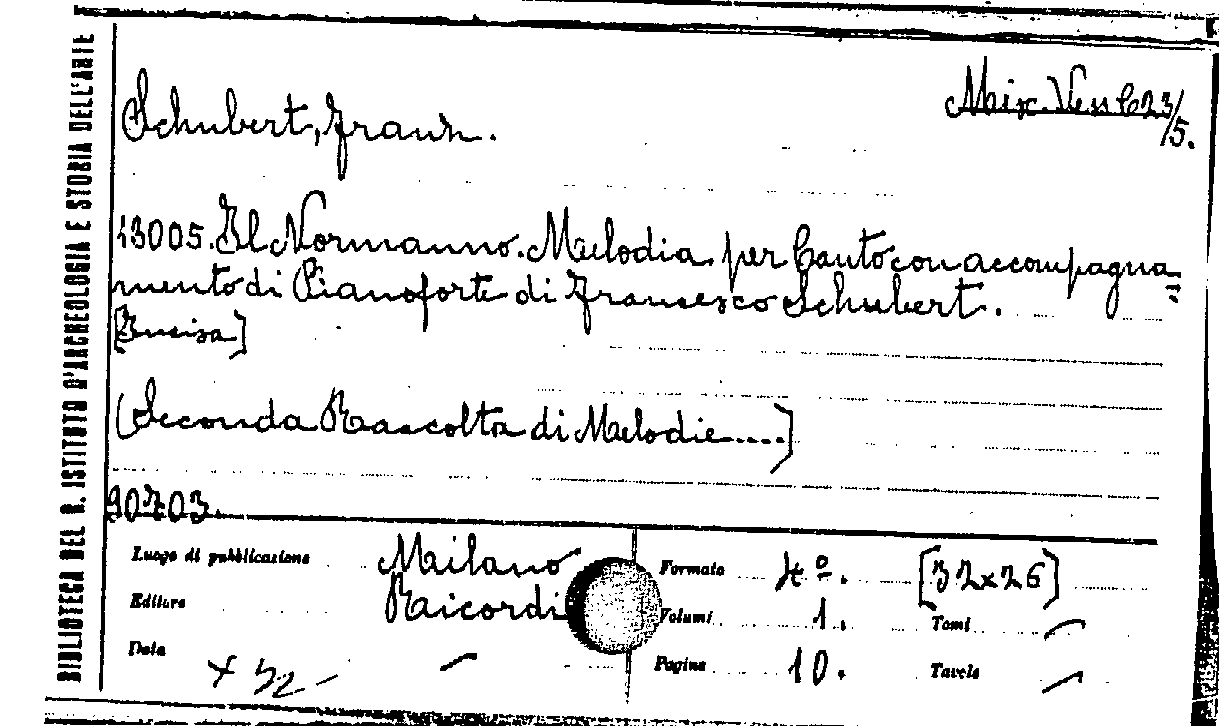 BIBLIOTECA DEL R. ISTITUTO D'ARCHEOLOGIA E STORIA DELL'ARTE
Schubert, Franz.
Mix. Vess C23/5.
43005. Il Normanno. Melodia per Canto con accompagna=
mento di Pianoforte di Francesco Schubert.
[Incisa]
(Seconda Raccolta di Melodie....)
90703.
Luogo di pubblicazione Milano Formato 4º. [32x26]
Editore Ricordi Volumi 1. Tomi —
Data — Pagine 10. Tavole —